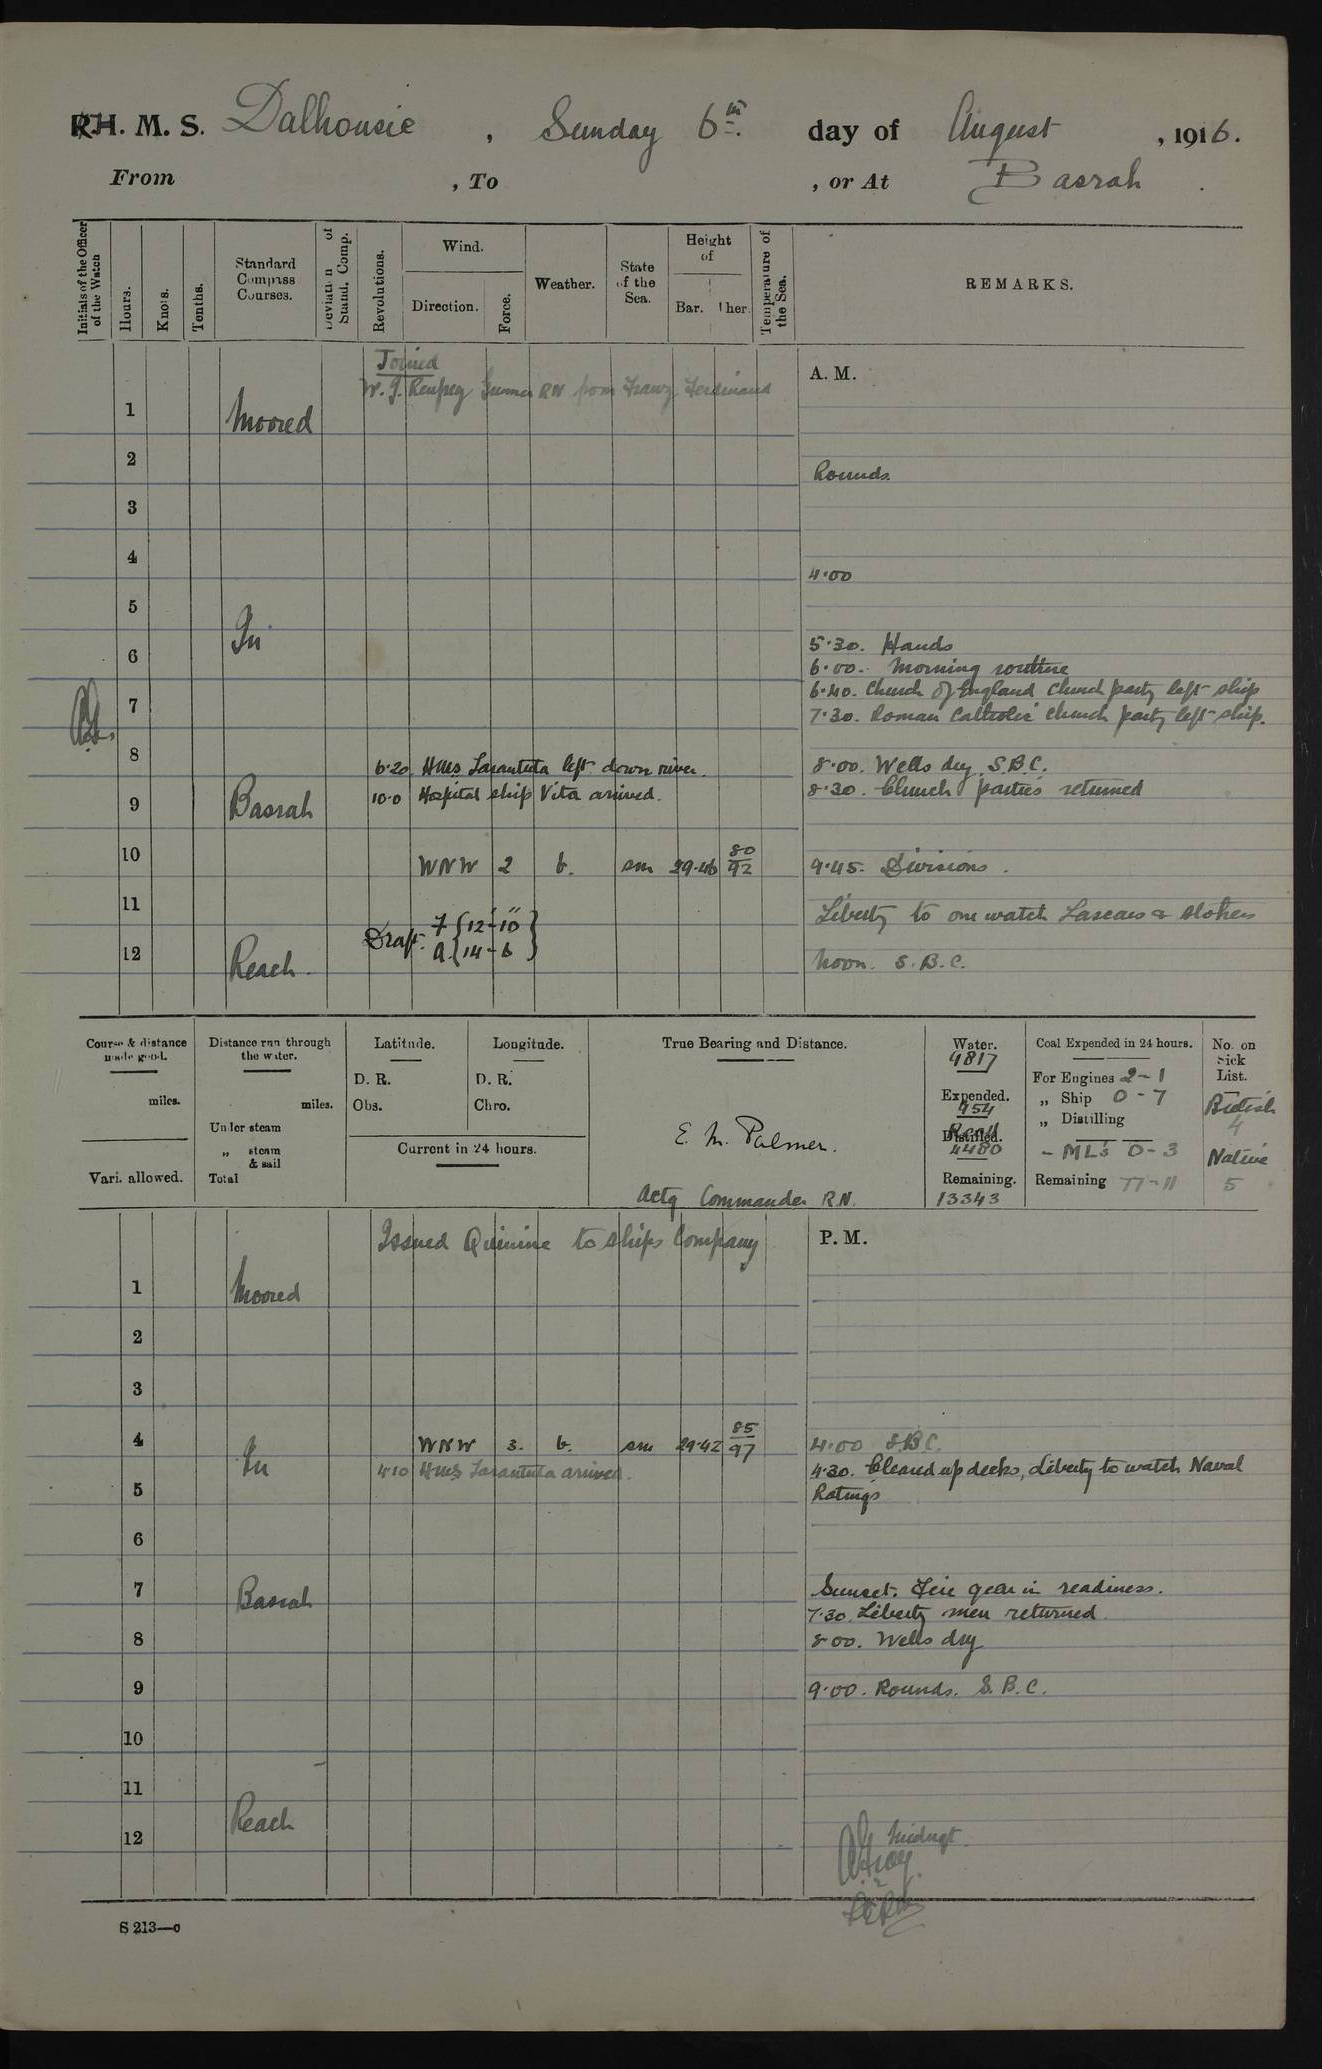 H. M. S. Dalhousie, Sunday 6th. day of August, 1916.
From , To , or At Basrah.
Initials of the Officer of the Watch
Hours.
Knots.
Tenths.
Standard Compass Courses.
Deviation of Stand. Comp.
Revolutions.
Wind.
Direction.
Force.
Weather.
State of the Sea.
Height of
Bar. Ther.
Temperature of the Sea.
REMARKS.
Joined
W. J. Gunner RN from Franz Ferdinand
A. M.
1 Moored
2 Rounds.
3
4 4.00
5
In
5.30. Hands
6 6.00. Morning routine
6.40. Church of England Church party left ship
7 7.30. Roman Catholic Church party left ship.
8 6.20 HMS Tarantula left down river. 8.00. Wells dry. S.B.C.
9 Basrah 10.0 Hospital ship Vita arrived. 8.30. Church parties returned
10 WNW 2 b. sm 29.46 80/92 9.45. Divisions.
11 Liberty to one watch Lascars & stokers
Draft. F {12'-10"}
A {14-6}
12 Reach. Noon. S.B.C.
Course & distance made good.
miles.
Vari. allowed.
Distance run through the water.
miles.
Under steam
„ steam & sail
Total
Latitude.
D. R.
Obs.
Longitude.
D. R.
Chro.
Current in 24 hours.
True Bearing and Distance.
E. M. Palmer.
Actg Commander RN.
Water.
4817
Expended.
954
Distilled.
Recd
4480
Remaining.
13343
Coal Expended in 24 hours.
For Engines 2-1
„ Ship 0-7
„ Distilling
- ML's 0-3
Remaining 77-11
No. on Sick List.
British
4
Native
5
Issued Quinine to ships Company
P. M.
1 Moored
2
3
4 WNW 3. b. sm 29.42 85/97 4.00 S.B.C.
In 4.10 HMS Tarantula arrived. 4.30. Cleared up decks, Liberty to watch Naval
5 Ratings
6
7 Basrah Sunset. Fire gear in readiness.
7.30. Liberty men returned
8 8.00. Wells dry
9 9.00. Rounds. S.B.C.
10
11
Reach
12 Midngt.
S 213—c